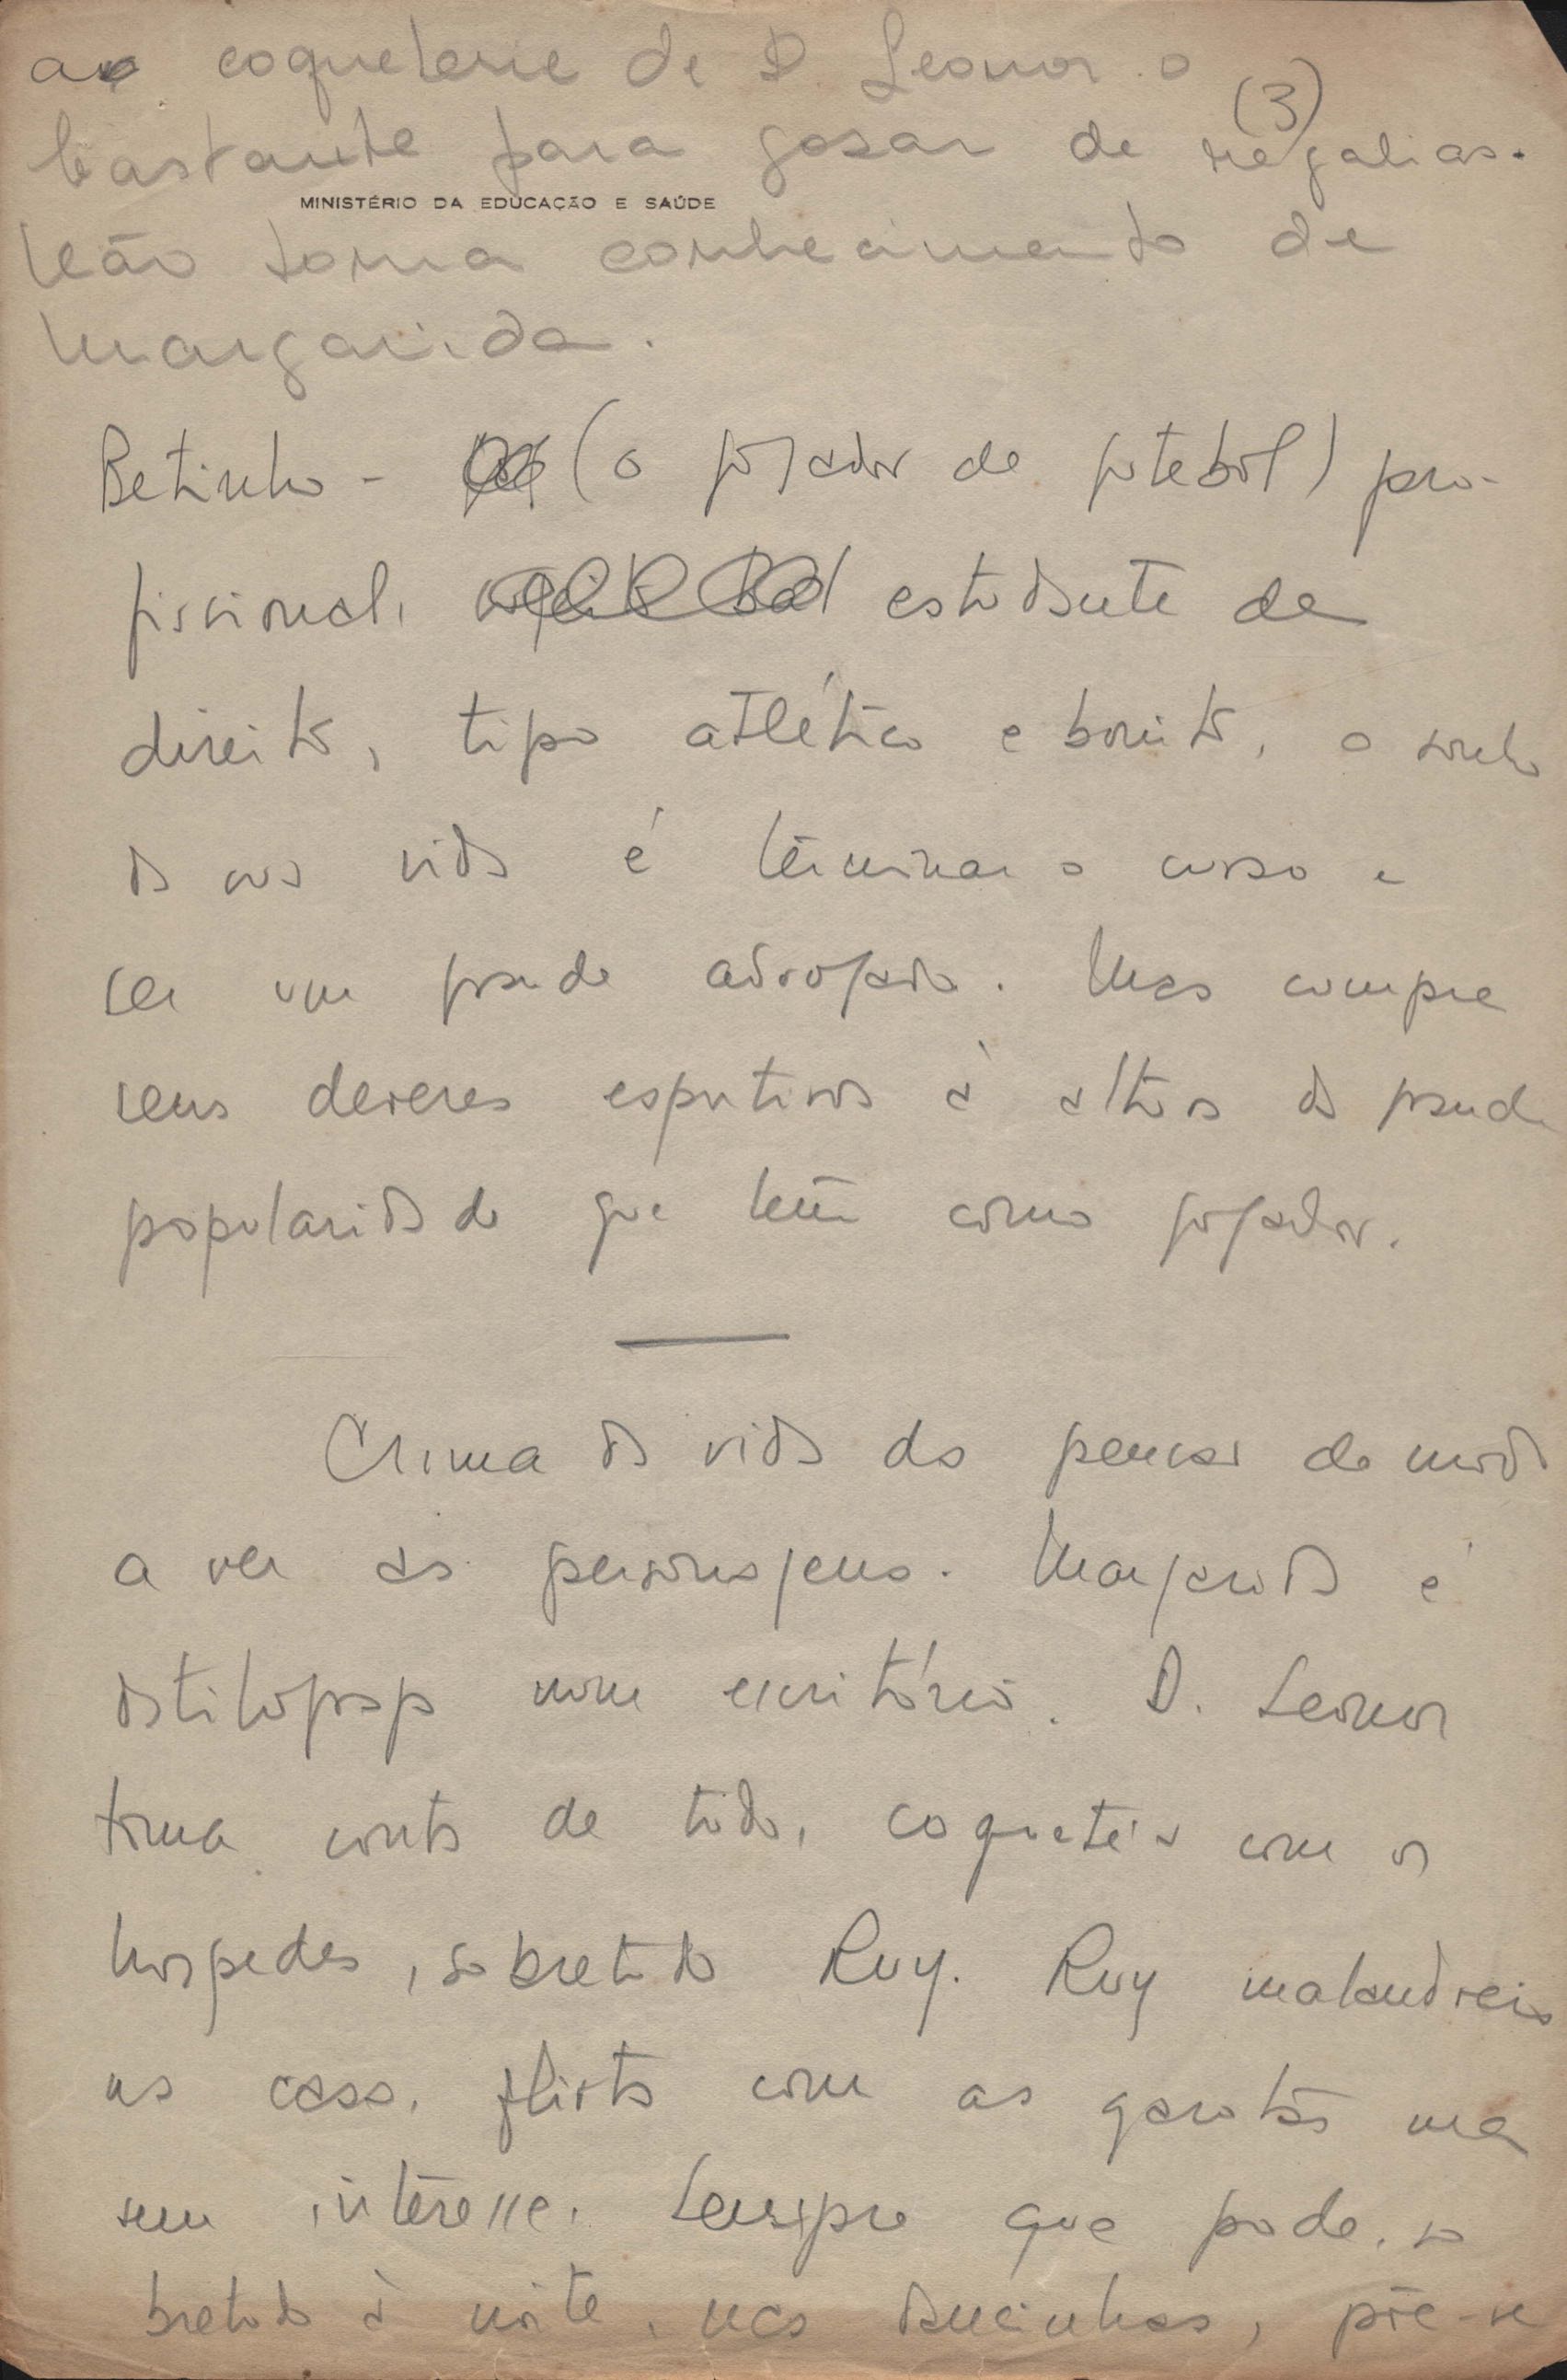 ao coqueterie de D Leonor o
(3)
bastante para gosar de regalias.
MINISTÉRIO DA EDUCAÇÃO E SAÚDE
Não toma conhecimento de
Margarida.
Betinho - (o jogador de futebol) pro-
fissional, estudante de
direito, tipo atlético e bonito, o sonho
da sua vida é terminar o curso e
ser um grande advogado. Mas cumpre
seus deveres esportivos à altura da grande
popularidade que tem como jogador.
Clima da vida da pensão de modo
a ver as personagens. Margarida é
datilografa num escritório. D. Leonor
toma conta de tudo, coqueteia com os
hospedes, sobretudo Ruy. Ruy malandreia
na casa, flirta com as garotas mas
sem interesse. Sempre que pode, so
bretudo à noite, nas dancinhas, põe-se